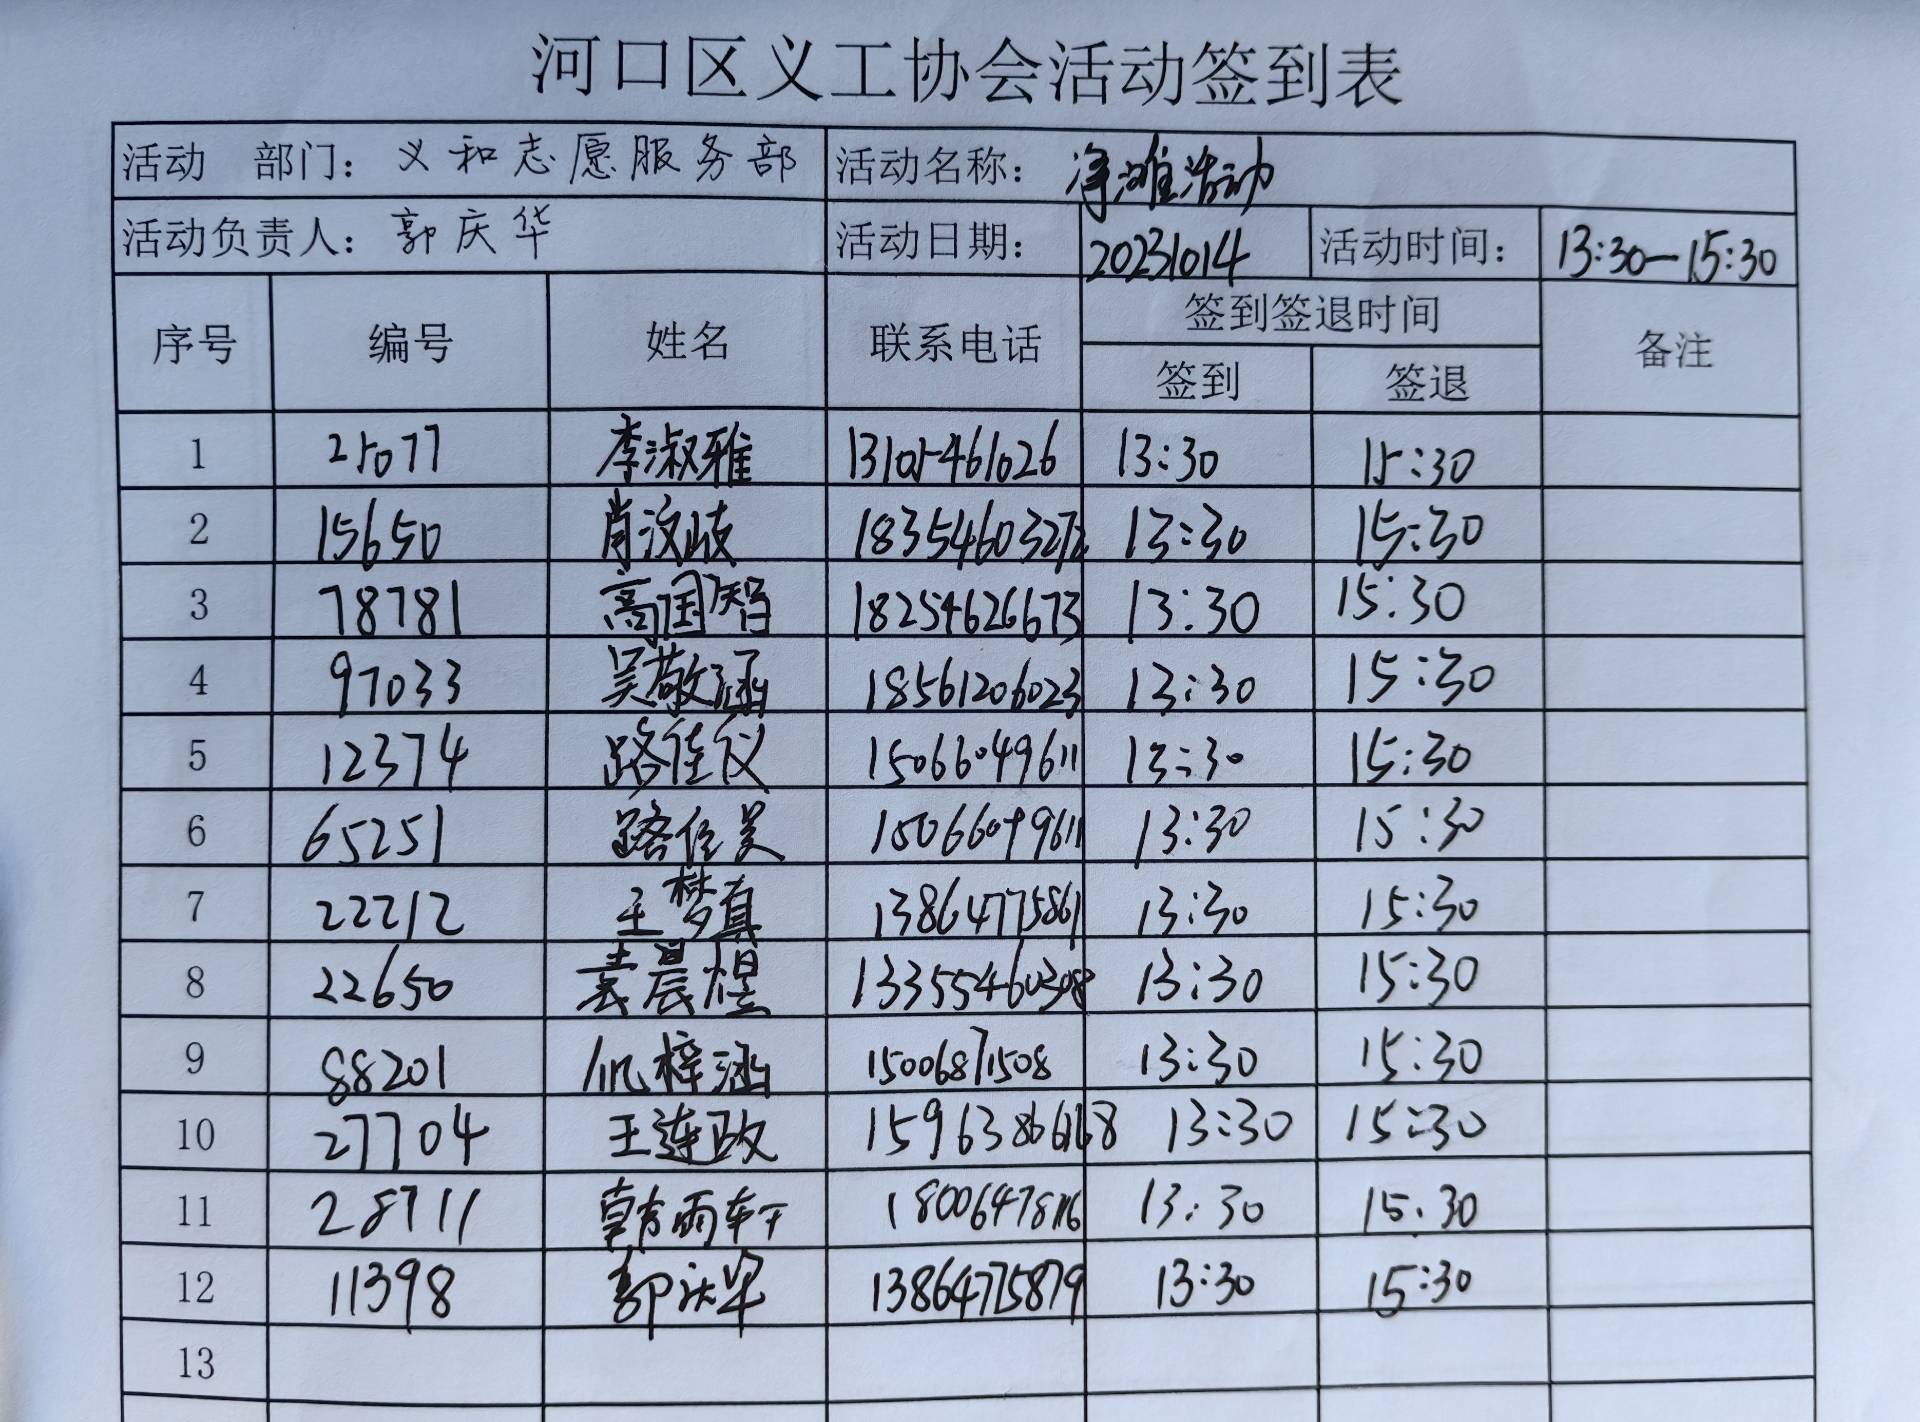 河口区义工协会活动签到表
活动 部门：义和志愿服务部 活动名称：净滩活动
活动负责人：郭庆华 活动日期：20231014 活动时间：13:30—15:30
序号 编号 姓名 联系电话 签到签退时间 备注
签到 签退
1 25077 李淑雅 13105461026 13:30 15:30
2 15650 肖汶岐 18354603272 13:30 15:30
3 78781 高国智 18254626673 13:30 15:30
4 97033 吴敬涵 18561206023 13:30 15:30
5 12374 路佳仪 15066049611 13:30 15:30
6 65251 路佳昊 15066049611 13:30 15:30
7 22212 王梦真 13864775861 13:30 15:30
8 22650 袁晨煜 13355460308 13:30 15:30
9 88201 梓涵 15006871508 13:30 15:30
10 27704 王连政 15963866168 13:30 15:30
11 28711 韩雨轩 18006478116 13:30 15:30
12 11398 郭庆华 13864775879 13:30 15:30
13